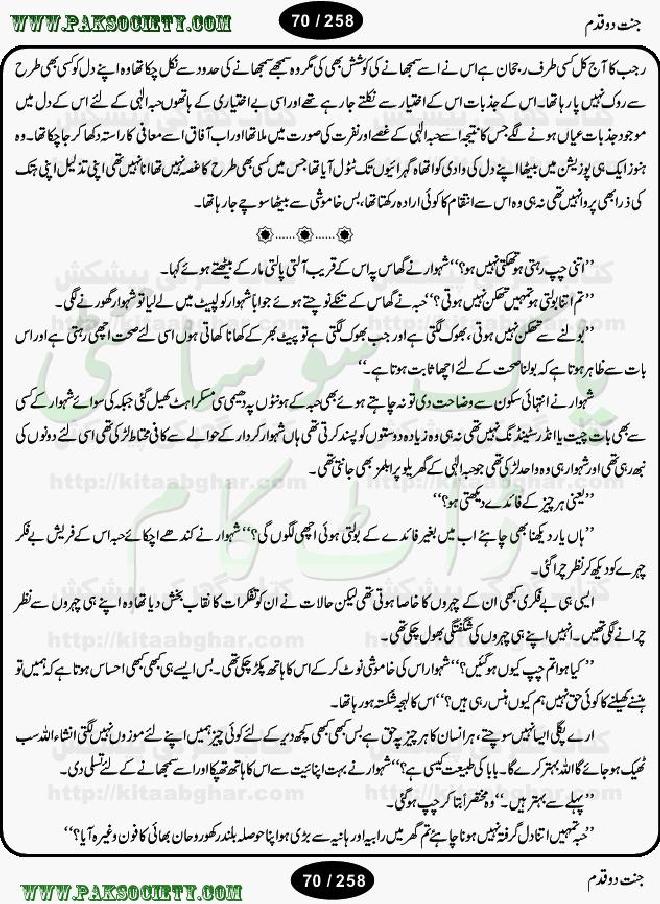 WWW.PAKSOCIETY.COM 70 / 258 جنت دو قدم
رجب کا آج کل کسی طرف رجحان ہے اس نے اسے سمجھانے کی کوشش بھی کی مگر وہ سمجھے سمجھانے کی حدود سے نکل چکا تھا وہ اپنے دل کو کسی بھی طرح
سے روک نہیں پا رہا تھا۔ اس کے جذبات اس کے اختیار سے نکلتے جا رہے تھے اور اسی بے اختیاری کے ہاتھوں حبہ الٰہی کے لئے اس کے دل میں
موجود جذبات عیاں ہونے لگے جس کا نتیجہ اسے حبہ الٰہی کے غصے اور نفرت کی صورت میں ملا تھا اور اب آفاق اسے معافی کا راستہ دکھا کر جا چکا تھا۔ وہ
ہنوز ایک ہی پوزیشن میں بیٹھا اپنے دل کی وادی کو اتھاہ گہرائیوں تک ٹٹول آیا تھا جس میں کسی بھی طرح کا غصہ نہیں تھا انا نہیں تھی اپنی تذلیل اپنی ہتک
کی ذرا بھی پروا نہیں تھی نہ ہی وہ اس سے انتقام کا کوئی ارادہ رکھتا تھا، بس خاموشی سے بیٹھا سوچے جا رہا تھا۔
’’اتنی چپ رہتی ہو تھکتی نہیں ہو؟‘‘ شہوار نے گھاس پہ اس کے قریب آلتی پالتی مار کے بیٹھتے ہوئے کہا۔
’’تم اتنا بولتی ہو تمہیں تھکن نہیں ہوتی؟‘‘ حبہ نے گھاس کے تنکے نوچتے ہوئے جواباً شہوار کو لپیٹ میں لے لیا تو شہوار گھورنے لگی۔
’’بولنے سے تھکن نہیں ہوتی، بھوک لگتی ہے اور جب بھوک لگتی ہے تو پیٹ بھر کے کھانا کھاتی ہوں اسی لئے صحت اچھی رہتی ہے اور اس
بات سے ظاہر ہوتا ہے کہ بولنا صحت کے لئے اچھا ثابت ہوتا ہے۔‘‘
شہوار نے انتہائی سکون سے وضاحت دی تو نہ چاہتے ہوئے بھی حبہ کے ہونٹوں پہ دھیمی سی مسکراہٹ کھیل گئی جبکہ کی سوائے شہوار کے کسی
سے بھی بات چیت یا انڈرسٹینڈنگ نہیں تھی نہ ہی وہ زیادہ دوستوں کو پسند کرتی تھی ہاں شہوار کردار کے حوالے سے کافی محتاط لڑکی تھی اسی لئے دونوں کی
نبھ رہی تھی اور شہوار ہی وہ واحد لڑکی تھی جو حبہ الٰہی کے گھریلو پرابلمز بھی جانتی تھی۔
’’یعنی ہر چیز کے فائدے دیکھتی ہو؟‘‘
’’ہاں یار دیکھنا بھی چاہئے اب میں بغیر فائدے کے بولتی ہوئی اچھی لگوں گی؟‘‘ شہوار نے کندھے اچکائے حبہ اس کے فریش بے فکر
چہرے کو دیکھ کر نظر چرا گئی۔
ایسی ہی بے فکری کبھی ان کے چہروں کا خاصا ہوتی تھی لیکن حالات نے ان کو تفکرات کا نقاب بخش دیا تھا وہ اپنے ہی چہروں سے نظر
چرانے لگی تھیں۔ انہیں اپنے ہی چہروں کی شگفتگی بھول چکی تھی۔
’’کیا ہوا تم چپ کیوں ہو گئیں؟‘‘ شہوار اس کی خاموشی نوٹ کر کے اس کا ہاتھ پکڑ چکی تھی۔ بس ایسے ہی کبھی کبھی احساس ہوتا ہے کہ ہمیں تو
ہنسنے کھیلنے کا کوئی حق نہیں ہم کیوں ہنس رہی ہیں؟‘‘ اس کا لہجہ شکستہ ہو رہا تھا۔
ارے پگلی ایسا نہیں سوچتے، ہر انسان کا ہر چیز پہ حق ہے بس کبھی کبھی کچھ دیر کے لئے کوئی چیز ہمیں اپنے لئے موزوں نہیں لگتی انشاء اللہ سب
ٹھیک ہو جائے گا اللہ بہتر کرے گا۔ بابا کی طبیعت کیسی ہے؟‘‘ شہوار نے بہت اپنائیت سے اس کا ہاتھ تھپکا اور اسے سمجھانے کے لئے تسلی دی۔
’’پہلے سے بہتر ہیں۔‘‘ وہ مختصراً بتا کر چپ ہو گئی۔
’’حبہ تمہیں اتنا دل گرفتہ نہیں ہونا چاہئے تم گھر میں رابیہ اور ہانیہ سے بڑی ہو اپنا حوصلہ بلند رکھو روحان بھائی کا فون وغیرہ آیا؟‘‘
WWW.PAKSOCIETY.COM 70 / 258 جنت دو قدم